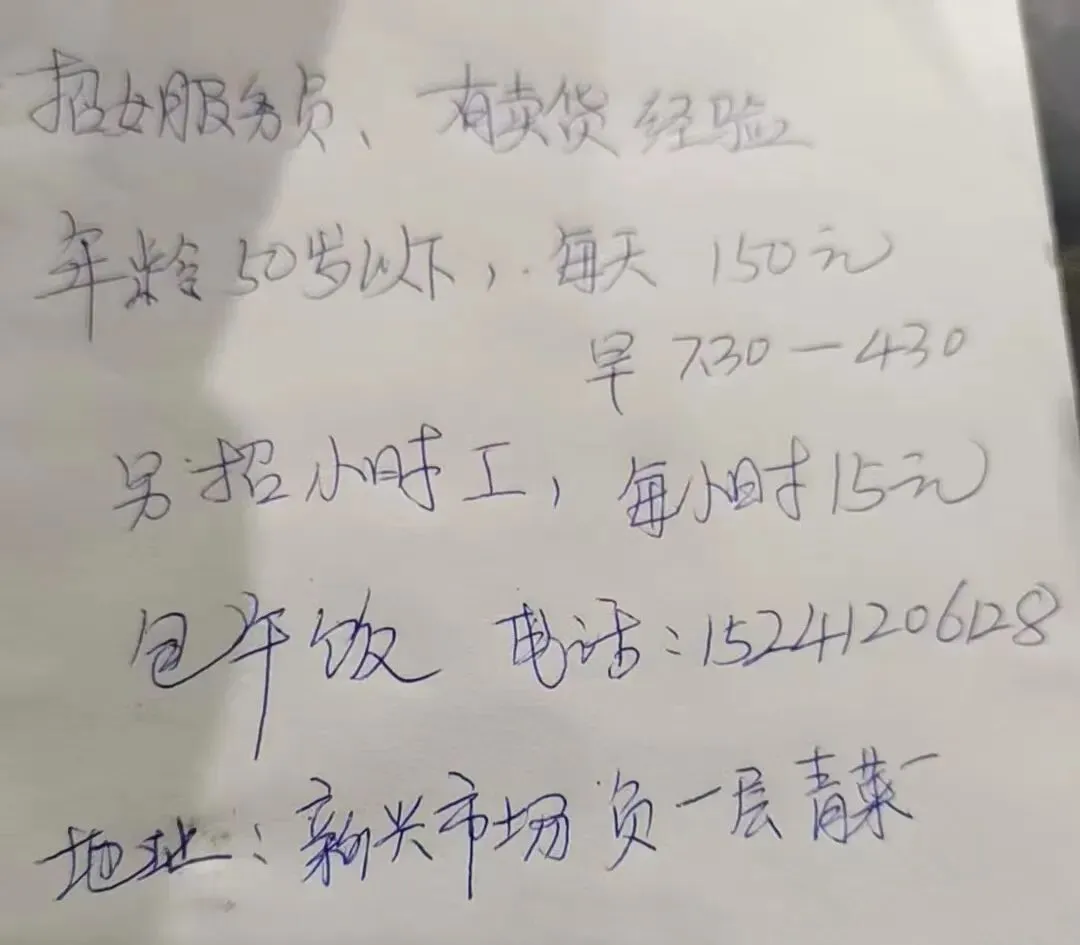 招女服务员、有卖货经验
年龄50岁以下，每天 150元
早 7.30一430
另招小时工，每小时15元
包午饭 电话：15241206128
地址：新兴市场负一层青菜一